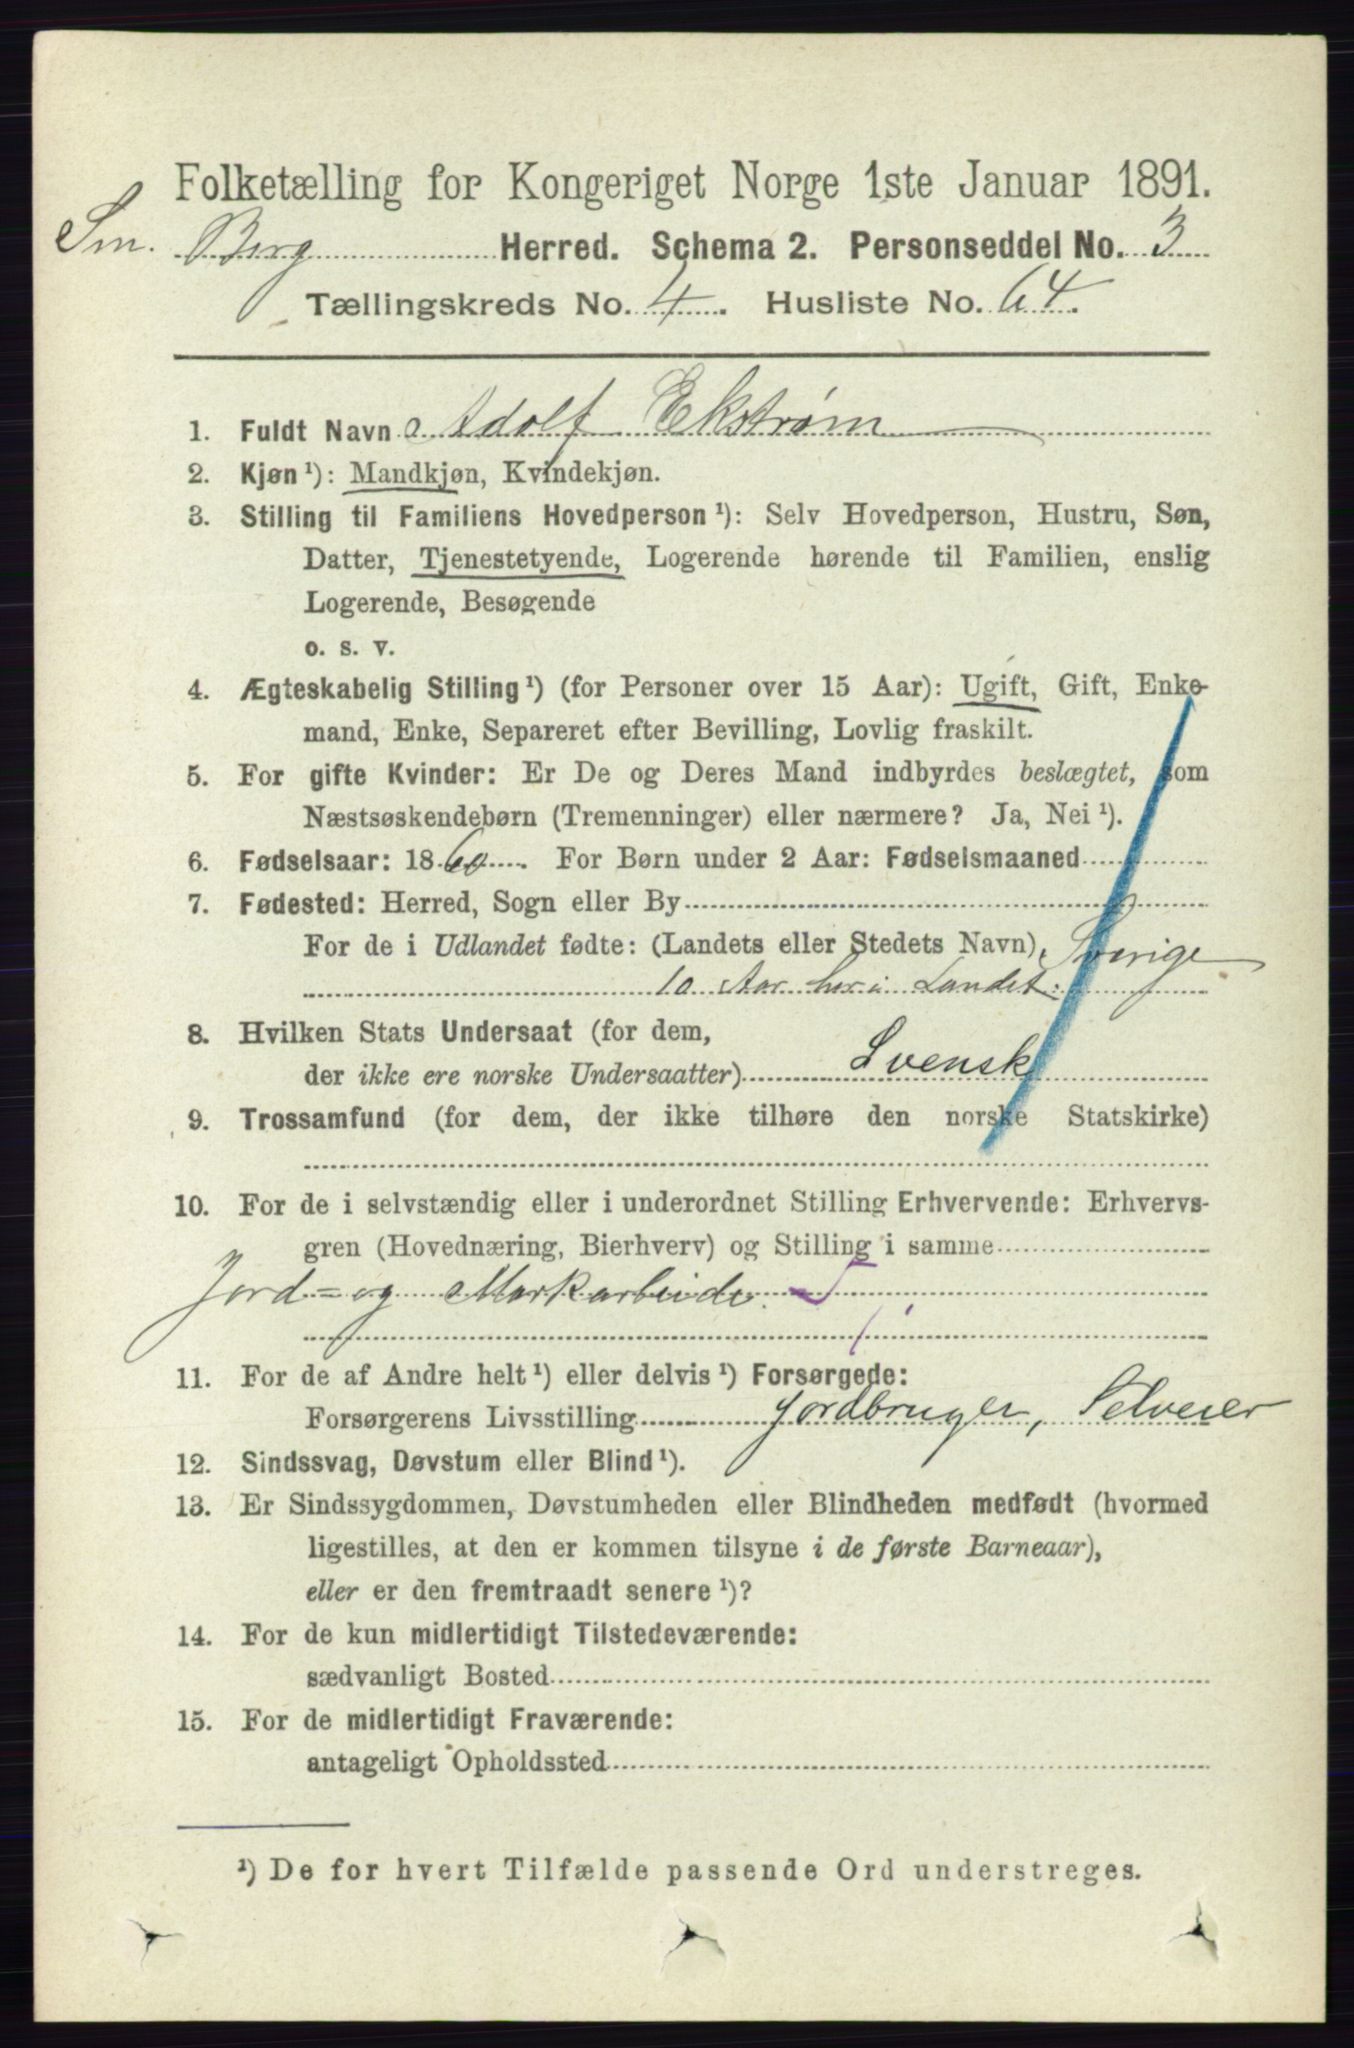 Folketælling for Kongeriget Norge 1ste Januar 1891.
Sm. Berg Herred. Schema 2. Personseddel No. 3
Tællingskreds No. 4. Husliste No. 64.
1. Fuldt Navn Adolf Ekstrøm
2. Kjøn ¹): Mandkjøn, Kvindekjøn.
3. Stilling til Familiens Hovedperson ¹): Selv Hovedperson, Hustru, Søn,
Datter, Tjenestetyende, Logerende hørende til Familien, enslig
Logerende, Besøgende
o. s. v.
4. Ægteskabelig Stilling ¹) (for Personer over 15 Aar): Ugift, Gift, Enke-
mand, Enke, Separeret efter Bevilling, Lovlig fraskilt.
5. For gifte Kvinder: Er De og Deres Mand indbyrdes beslægtet, som
Næstsøskendebørn (Tremenninger) eller nærmere? Ja, Nei ¹).
6. Fødselsaar: 1860. For Børn under 2 Aar: Fødselsmaaned
7. Fødested: Herred, Sogn eller By
For de i Udlandet fødte: (Landets eller Stedets Navn) Sverige
10 Aar her i Landet.
8. Hvilken Stats Undersaat (for dem,
der ikke ere norske Undersaatter) Svensk
9. Trossamfund (for dem, der ikke tilhøre den norske Statskirke)
10. For de i selvstændig eller i underordnet Stilling Erhvervende: Erhvervs-
gren (Hovednæring, Bierhverv) og Stilling i samme
Jord- og Markarbeide.
11. For de af Andre helt ¹) eller delvis ¹) Forsørgede:
Forsørgerens Livsstilling Jordbruger, Selveier
12. Sindssvag, Døvstum eller Blind ¹).
13. Er Sindssygdommen, Døvstumheden eller Blindheden medfødt (hvormed
ligestilles, at den er kommen tilsyne i de første Barneaar),
eller er den fremtraadt senere ¹)?
14. For de kun midlertidigt Tilstedeværende:
sædvanligt Bosted
15. For de midlertidigt Fraværende:
antageligt Opholdssted
¹) De for hvert Tilfælde passende Ord understreges.